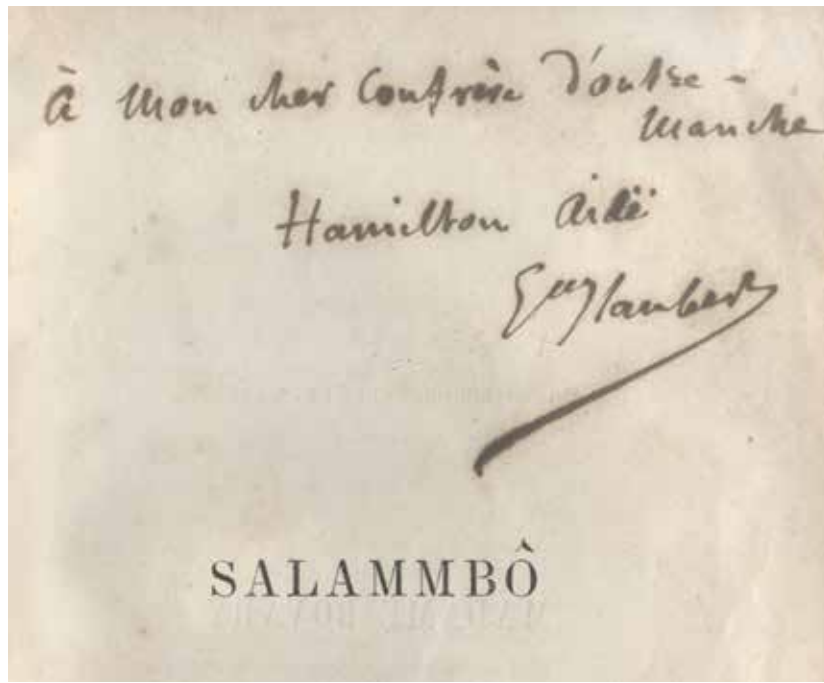 à mon cher confrère d'outre-
manche
Hamilton Aïdé
Gve Flaubert
SALAMMBÔ